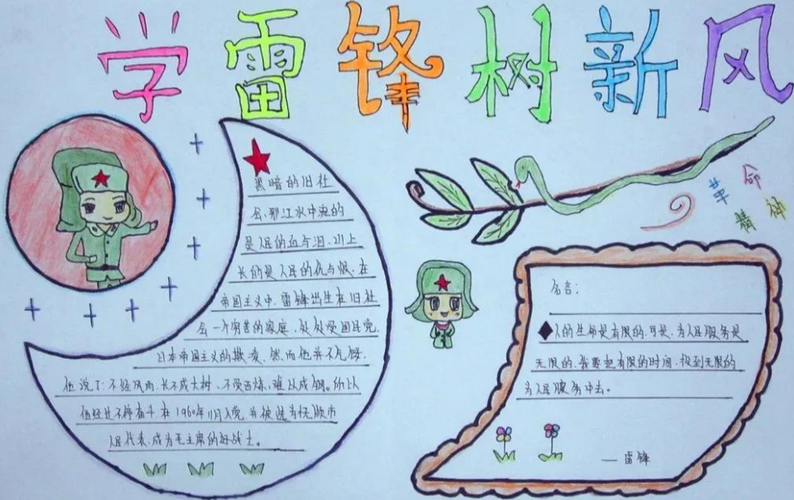 学雷锋树新风
黑暗的旧社
会,那江水中流的
是人民的血与泪,山上
长的是人民的仇与恨,在
帝国主义中,雷锋出生在旧社
会一个穷苦的家庭,处处受国民党,
日本帝国主义的欺凌,然而他并不气馁,
他说了:不经风雨,长不成大树,不受百炼,难以成钢。所以
他经过不停奋斗在1960年11月入党,并被选为抚顺市
人民代表,成为毛主席的好战士。
革命
精神
名言:
人的生命是有限的,可是,为人民服务是
无限的,我要把有限的时间,投到无限的
为人民服务中去。
——雷锋